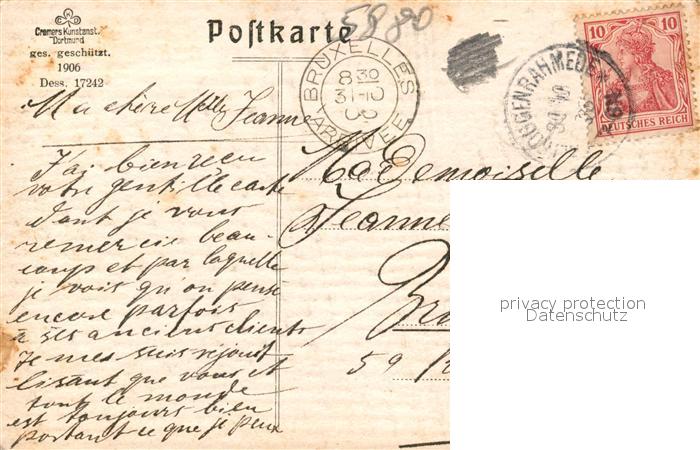 Cramers Kunstanst.
Dortmund
ges. geschützt.
1906
Dess. 17242
Postkarte
5880
BRUXELLES
8 30
31-10
06
ARRIVEE
10 10
DEUTSCHES REICH
Ma chère Melle Jeanne
J'ai bien reçu
votre gentille carte
dont je vous
remercie beau-
coup et par laquelle
je vois qu'on pense
encore parfois
à ses anciens clients
Je me suis réjouit
lisant que vous et
tout le monde
est toujours bien
portant ce que je peux
Mademoiselle
Jeanne
Br
59 R
privacy protection
Datenschutz